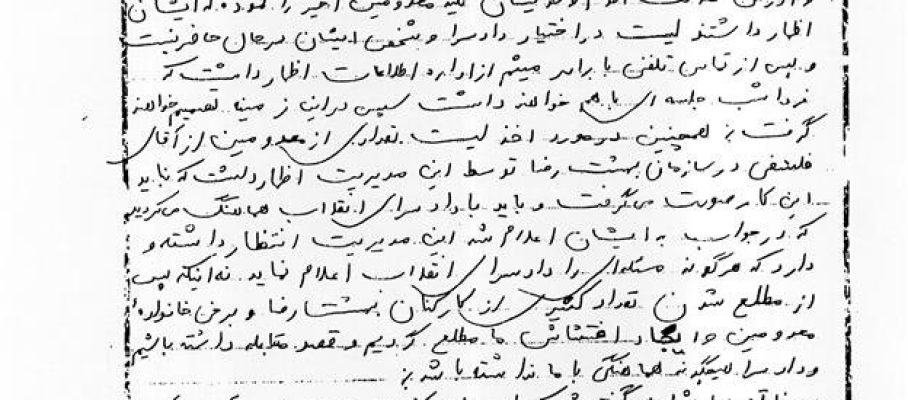 اظهار داشتند لیست در اختیار دادسرا و شخص ایشان در حال حاضر نیست
و پس از تماس تلفنی با برادر میثم از اداره اطلاعات اظهار داشت که
فردا شب جلسه ای با هم خواهند داشت سپس در این زمینه تصمیم خواهند
گرفت و همچنین در مورد اخذ لیست تعدادی از معدومین از آقای
فلسفی در سازمان بهشت رضا توسط این مدیریت اظهار داشت که نباید
این کار صورت می گرفت و باید با دادسرای انقلاب هماهنگ می کردید
که در جواب به ایشان اعلام شد این مدیریت انتظار داشته و
دارد که هرگونه مسئله ای را دادسرای انقلاب اعلام نماید نه اینکه پس
از مطلع شدن تعداد کثیری از کارکنان بهشت رضا و برخی خانواده
معدومین و ایجاد اغتشاش ما مطلع گردیم و قصد مقابله داشته باشیم
و دادسرا هیچگونه هماهنگی با ما نداشته باشد